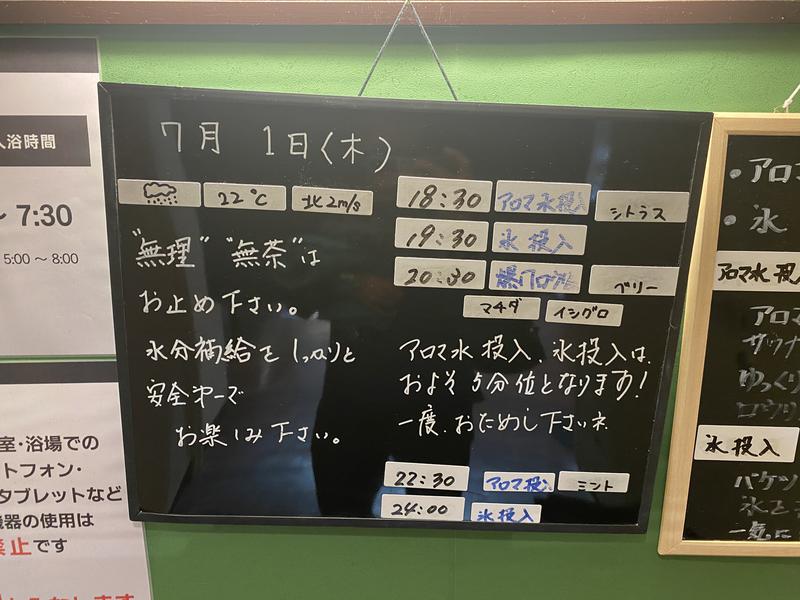 入浴時間
～ 7:30
5:00 ～ 8:00
室・浴場での
トフォン・
タブレットなど
機器の使用は
禁止です
7月 1日(木)
22℃
北2m/s
"無理" "無茶"は
お止め下さい。
水分補給をしっかりと
安全第一で
お楽しみ下さい。
18:30 アロマ水投入 シトラス
19:30 氷投入
20:30 爆アロウリュ ベリー
マチダ イシグロ
アロマ水投入、氷投入は、
およそ5分位となります!
一度、おためし下さいネ
22:30 アロマ投入 ミント
24:00 氷投入
・アロマ
・氷
アロマ水投入
アロマ
サウナ
ゆっくり
ロウリ
氷投入
バケツ
氷を
一気に